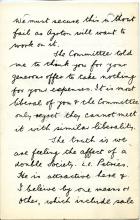 We must secure this without
fail as Ayrton will want to
work on it.
The Committee told
me to thank you for your
generous offer to take nothing
for your expenses. It is most
liberal of you & the Committee
only regret they cannot meet
it with similar liberality.
The truth is we
are feeling the effect of a
double Society. i.e. Patrons.
He is attractive here &
I believe by one means or
other, which include sale